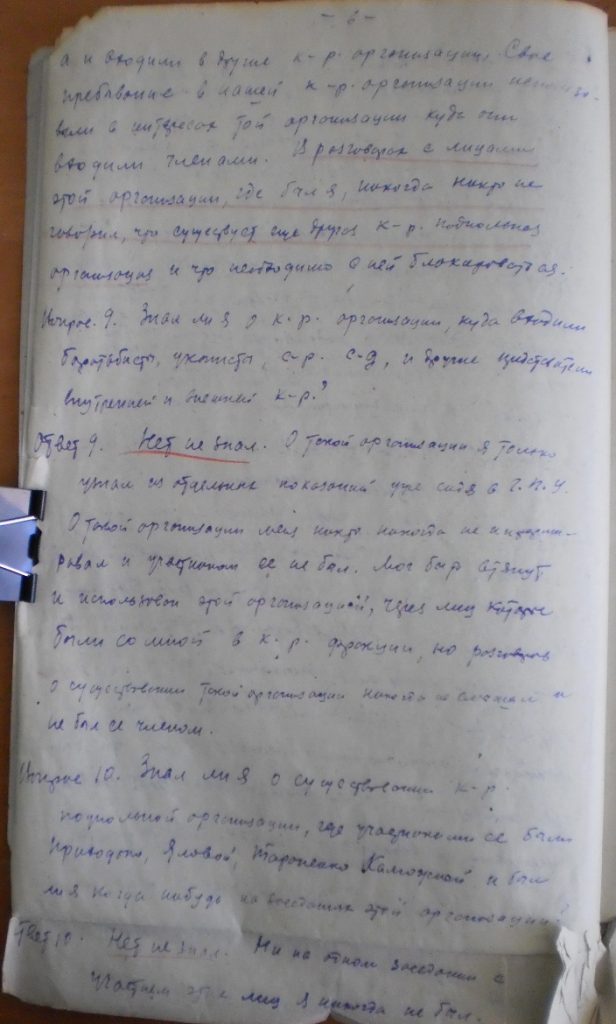 - 6 -
а и входили в другие к-р. организации. Свое
пребывание в нашей к-р. организации использо-
вали в интересах той организации куда они
входили членами. В разговорах с лицами
этой организации, где был я, никогда никто не
говорил, что существует еще другая к-р. подпольная
организация и что необходимо с ней блокироваться.
Вопрос 9. Знал ли я о к.р. организации, куда входили
боротьбисты, укаписты, с-р. с-д, и другие
внутренней и внешней к-р.?
Ответ 9. Нет не знал. О такой организации я только
узнал из отдельных показаний уже сидя в Г.П.У.
О такой организации меня никто никогда не информи-
ровал и участником ее не был. Мог быть втянут
и использован этой организацией, через лиц которые
были со мной в к.р. фракции, но разговоров
о существовании такой организации никогда не слышал и
не был ее членом.
Вопрос 10. Знал ли я о существовании к-р.
подпольной организации, где участниками ее были
Приходько, Яловой, и был
ли я когда нибудь на заседаниях этой организации?
Ответ 10. Нет не знал. Ни на одном заседании с
участием этих лиц я никогда не был.